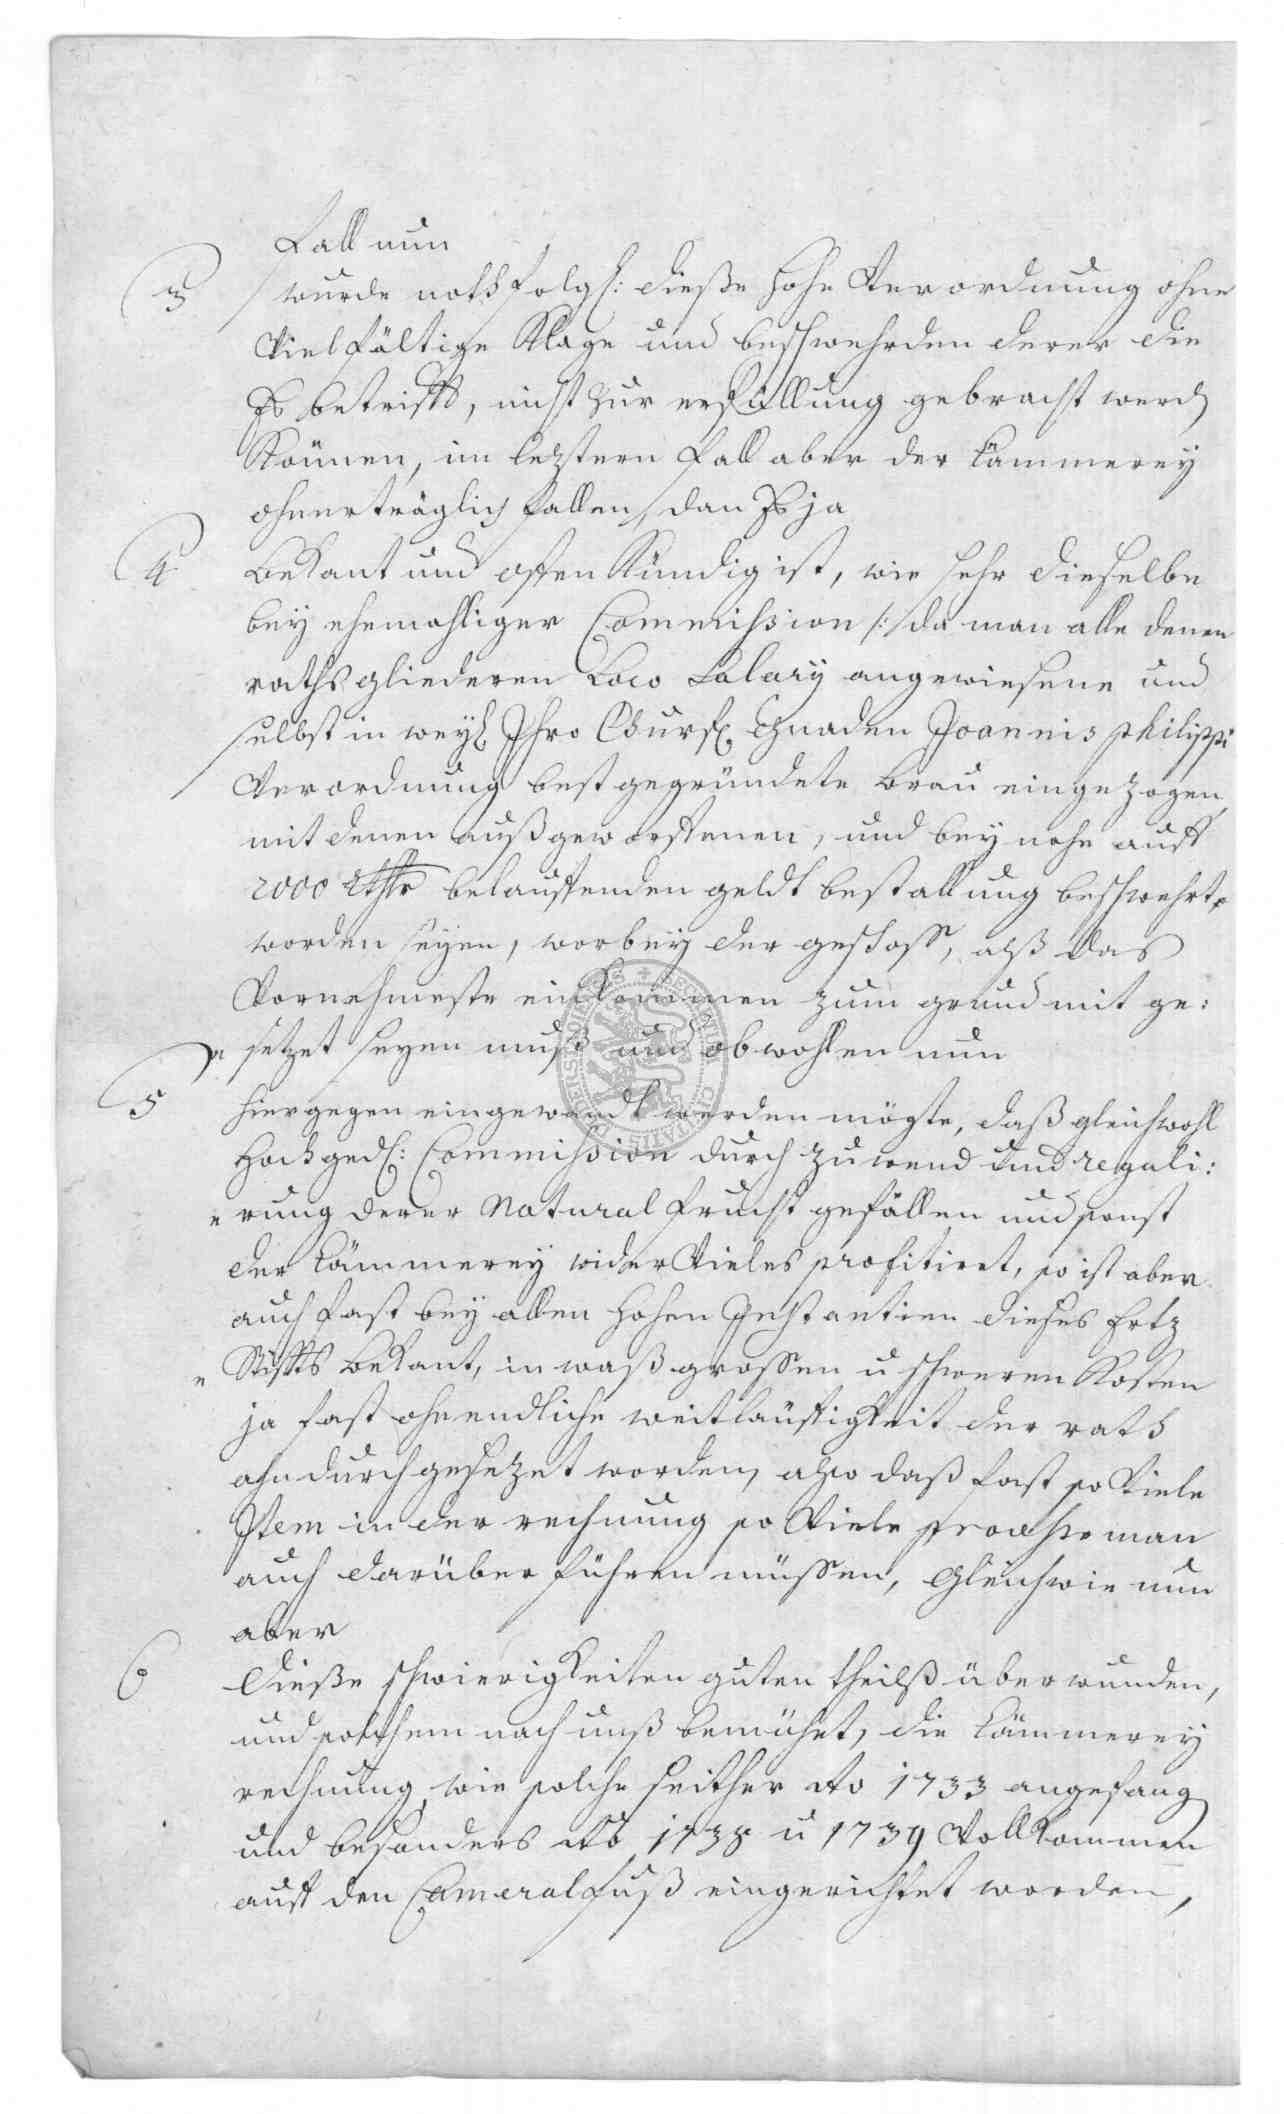 Fall nun
3 wurde nothfolgl: dieße hohe Verordnung ohne
Vielfältige Klage und beschwehrden derer die
Es betrifft, nicht zur erfüllung gebracht werd
Können, im leztern fall aber der Cämmerey
ohnerträglich fallen, dan Es ja
4 bekant und offenkündig ist, wie sehr dieselbe
bey ehemahliger Commission /: da man alle denen
rathsgliederen Loco Salary angewiesene und
selbst in weyl Ihro Churf. Gnaden Joannis Philippi
Verordnung best gegründete brau eingezogen,
mit denen außgeworffenen, und bey nahe auff
2000 Rthr belauffenden geldt bestallung beschwehrt
worden seyen, worbey der geschoss, alß das
Vornehmeste einkommen zum grund mit ge:
setzet seyen muß und obwohlen nun
5 hiergegen eingewandt werden mögte, daß gleichwohl
Hochged: Commission durch zuwend und reguli:
rung derer Natural frucht gefällen und sonst
der Cämmerey wider Vieles profitiret, so ist aber
auch fast bey allen hohen Instantien dieses Ertz
Stiffts bekant, in waß grossen u schweren Kosten
ja fast ohnendliche weitläuffigkeit der rath
ahn durch gesezet worden, also daß fast so Viele
Item in der rechnung so Viele processe man
auch darüber führen müssen, Gleichwie nun
aber
6 Dieße schwierigkeiten guten theilß überwunden,
und solchem nach unß bemühet, die Cämmerey
rechnung, wie solche seither Ao 1733 angefang
und besonders Ao 1738 u 1739 Vollkommen
auff den Cameral fuß eingerichtet worden,